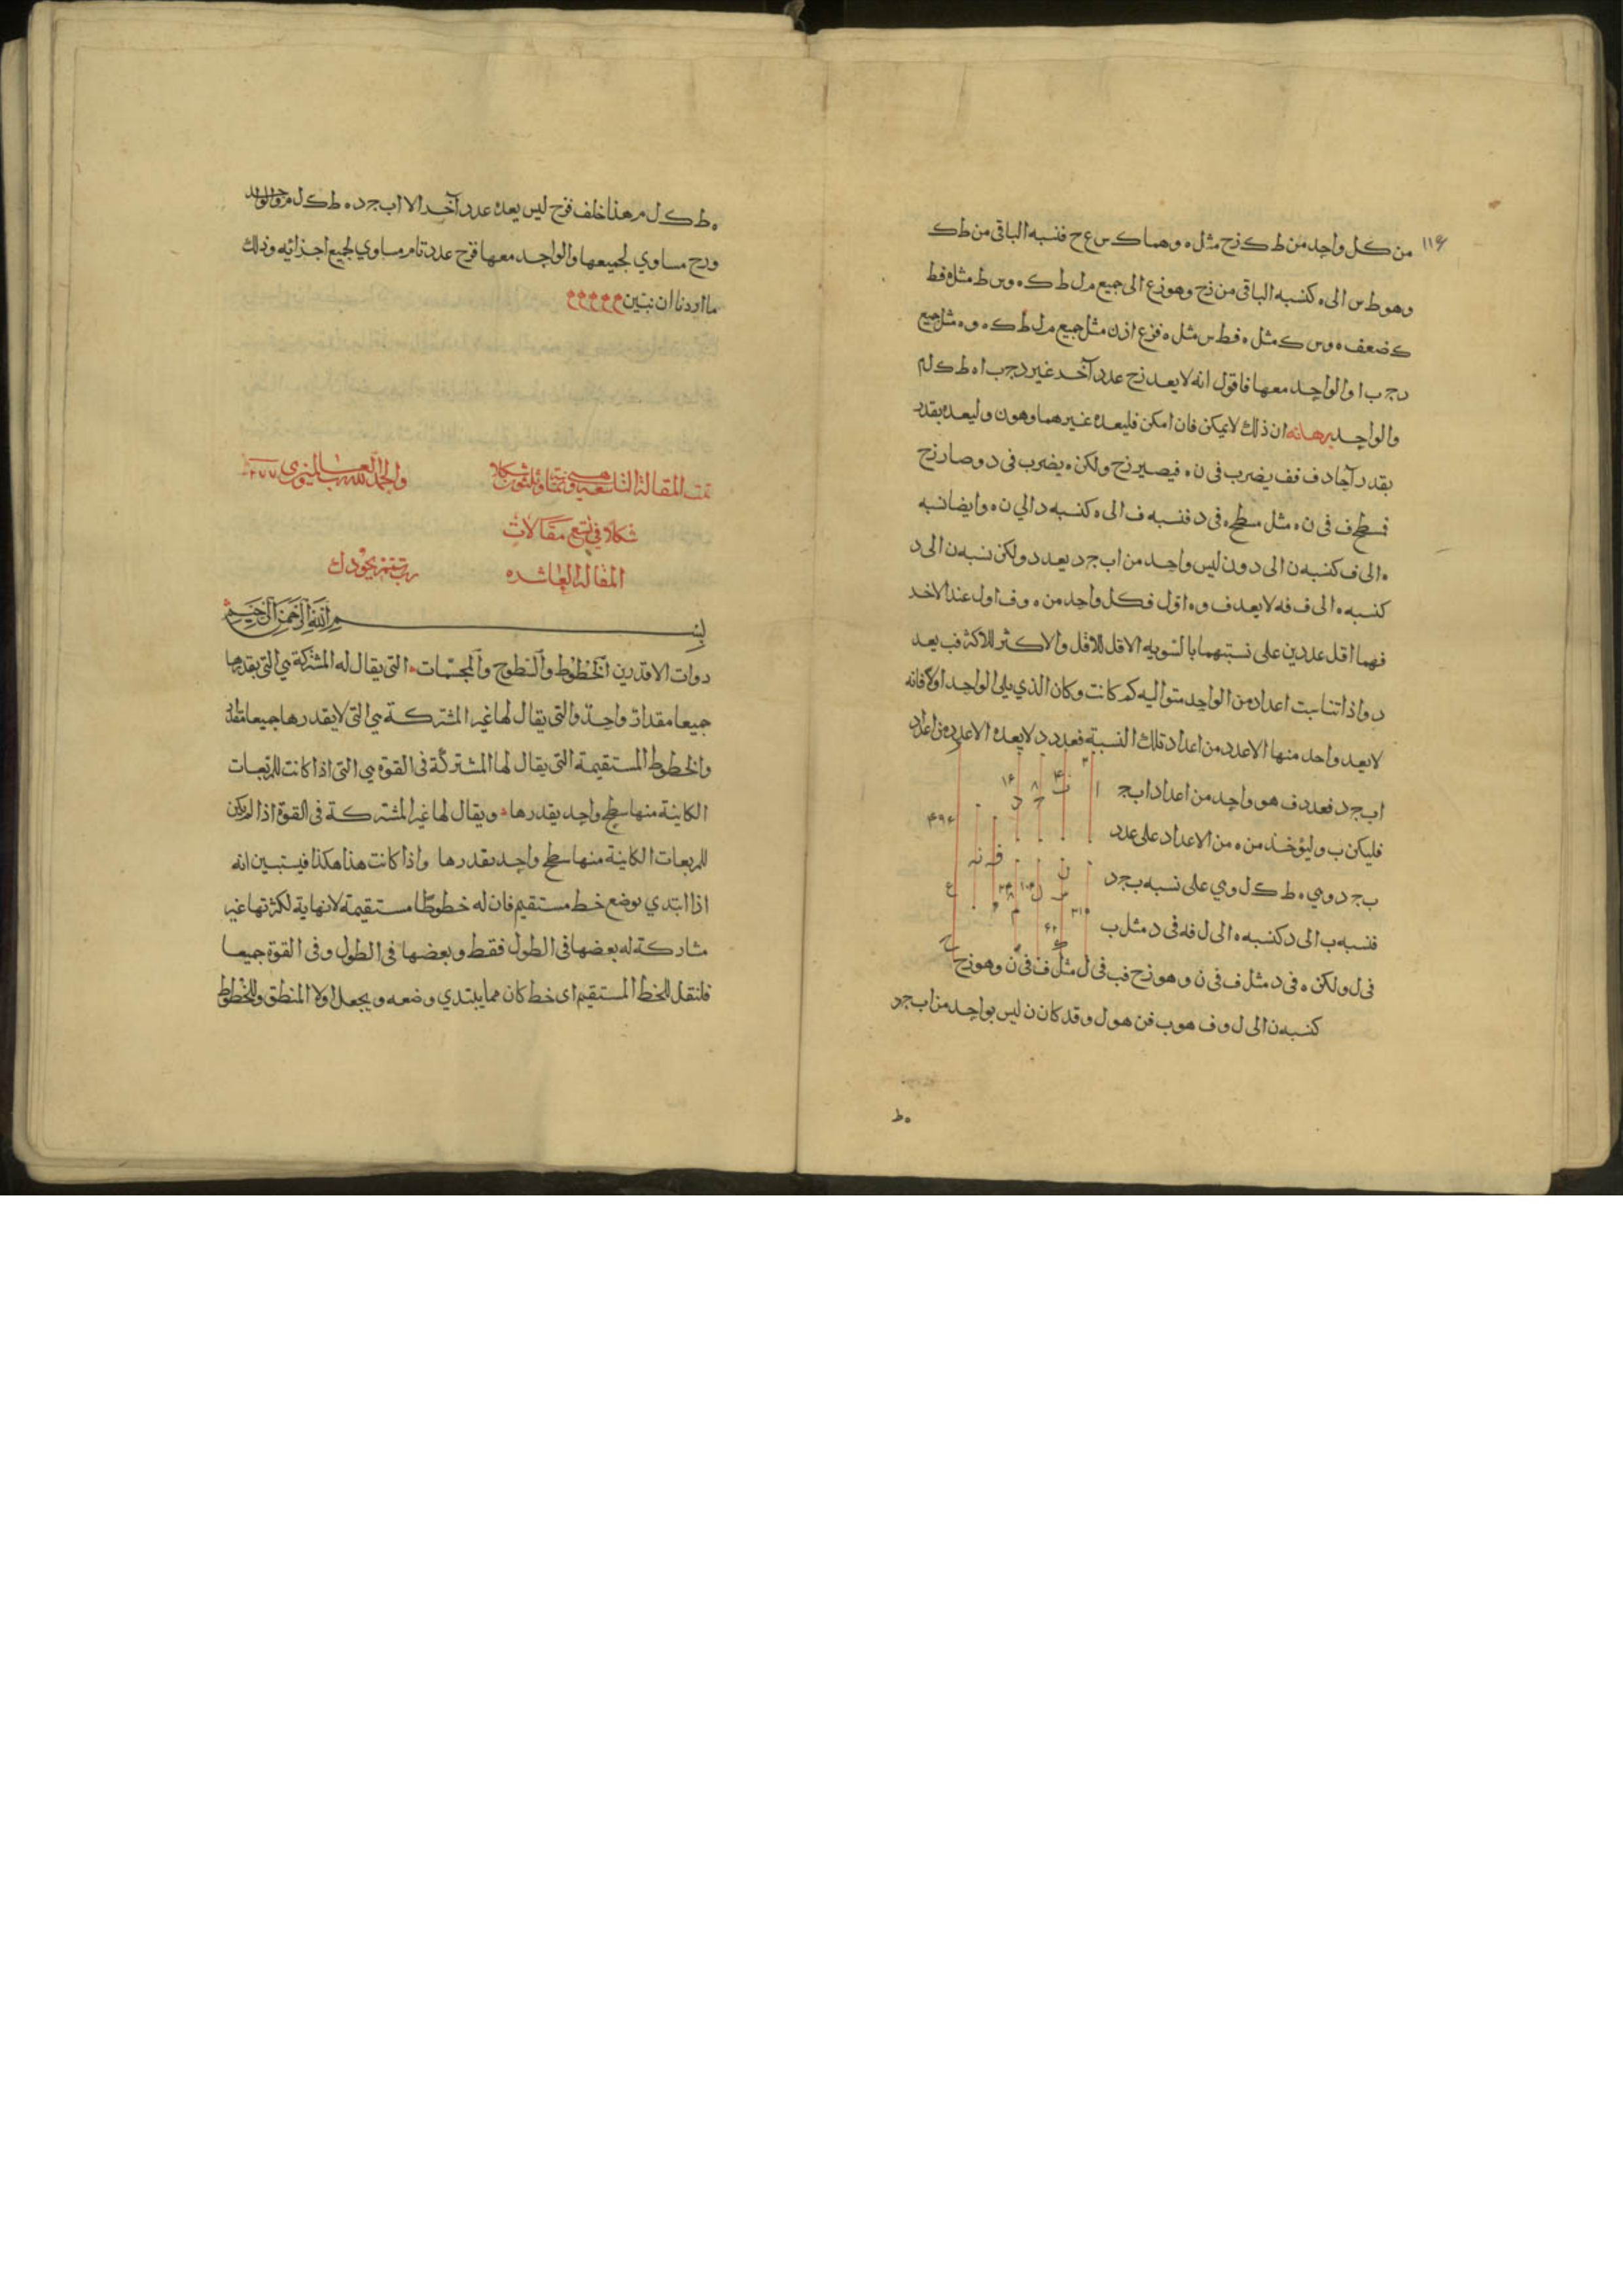 ١١٤
من كل واحد من ط ك زح مثل ه وهما ك س ع ح فنسبه الباقى من ط ك
وهو ط س الى ه كنسبه الباقى من زح وهو زع الى جميع م ل ط ك ه وس ط مثل ه فط
ك ضعف ه وس ك مثل ه فط س مثل ه فزع اذن مثل جميع م ل ط ك ه وه مثل جميع
د ج ب ا والواحد معها فاقول انه لا يعد زح عدد آخر غير د ج ب ا ه ط ك ل م
والواحد برهانه ان ذلك لا يمكن فان امكن فليعده غيرهما وهو ن وليعده بقدر
بقدر آحاد ف فف يضرب فى ن ه فيصير زح ولكن ه يضرب فى د وصار زح
فسطح ف فى ن ه مثل سطح ه فى د فنسبه ف الى ه كنسبه د الي ن ه وايضا نسبه
ه الى ف كنسبه ن الى د ون ليس واحد من اب ج د يعد د ولكن نسبه ن الى د
كنسبه ه الى ف فه لا يعد ف وه اول فكل واحد من ه وف اول عند الاخر
فهما اقل عددين على نسبتهما بالتسويه الاقل للاقل والاكثر للاكثر فب يعد
د واذا تناسبت اعداد من الواحد متواليه كم كانت وكان الذي يلى الواحد اولا فانه
لا يعد واحد منها الا عدد من اعداد تلك النسبة فعدد د لا يعده الا عدد من اعداد
اب ج د فعدد ف هو واحد من اعداد اب ج
فليكن ب وليؤخذ من ه من الاعداد على عدد
ب ج د وهي ه ط ك ل وهي على نسبه ب ج د
فنسبه ب الى د كنسبه ه الى ل فه فى د مثل ب
فى ل ولكن ه فى د مثل ف فى ن وهو زح فب فى ل مثل ف فى ن وهو زح
كنسبه ن الى ل وف هو ب فن هو ل وقد كان ن ليس بواحد من اب ج د
ه ط
ه ط ك ل م هذا خلف فزح ليس يعده عدد آخر الا اب ج د ه ط ك ل م والواحد
وزح مساوي لجميعها والواحد معها فزح عدد تام مساوي لجميع اجزائه وذلك
ما اردنا ان نبين
تمت المقالة التاسعة وهي ثمانية وثلثون شكلا
والحمد لله رب العالمين
شكلا في تسع مقالات
المقالة العاشره
رب تمم بجودك
بسم الله الرحمن الرحيم
ذوات الاقدرين الخطوط والسطوح والمجسمات التى يقال له المشتركة هي التى يقدرها
جميعا مقدار واحد والتى يقال لها غير المشتركة هي التى لا يقدرها جميعا
والخطوط المستقيمة التى يقال لها المشتركة فى القوة هي التى اذا كانت للمربعات
الكاينة منها سطح واحد يقدرها ويقال لها غير المشتركة فى القوة اذا لم يكن
للمربعات الكاينة منها سطح واحد يقدرها واذا كانت هذا هكذا فيستبين انه
اذا ابتدي بوضع خط مستقيم فان له خطوطا مستقيمة لا نهاية لكثرتها غير
مشاركة له بعضها فى الطول فقط وبعضها فى الطول وفى القوة جميعا
فلنقل للخط المستقيم اى خط كان مما يبتدي وضعه ويجعل اولا المنطق وللخطوط